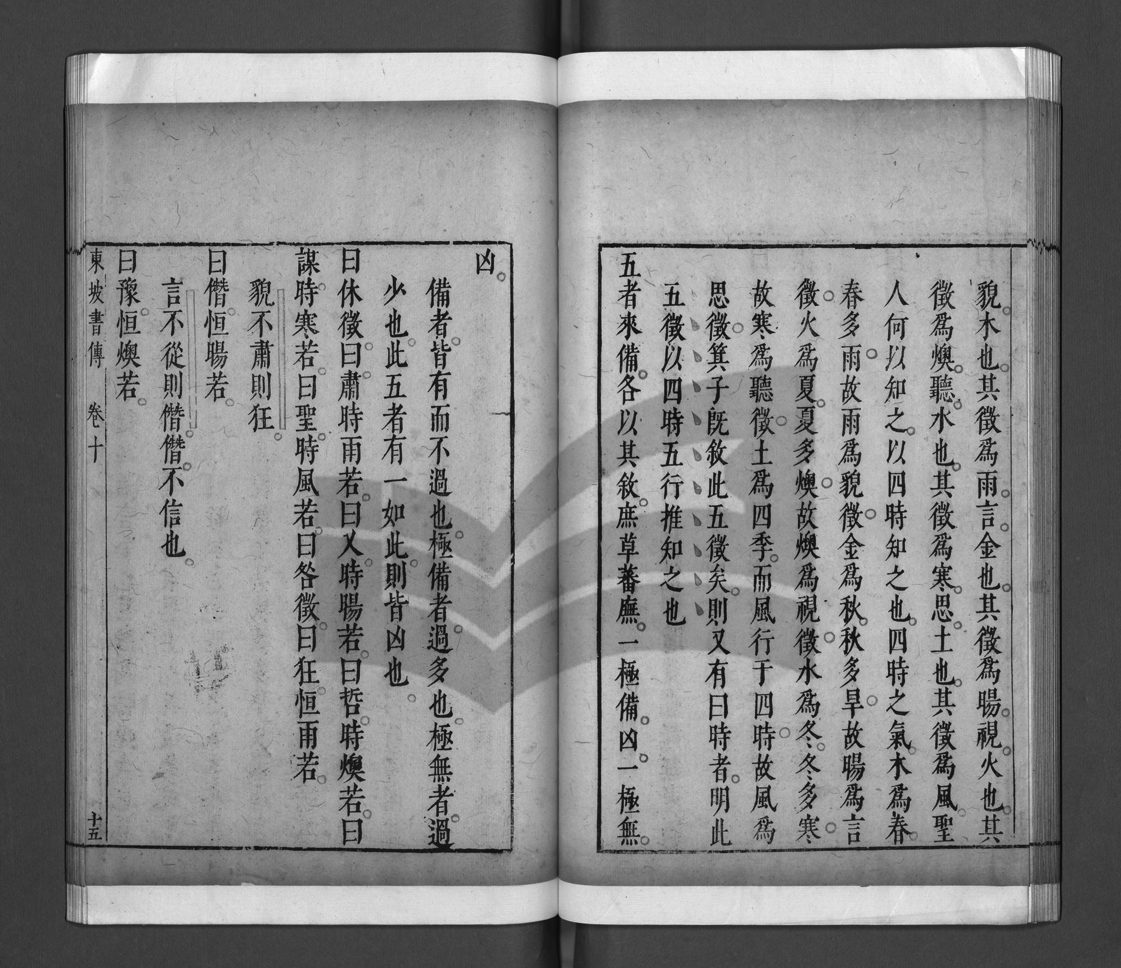 貌木也其徵爲雨言金也其徵爲暘視火也其
徵爲燠聽水也其徵爲寒思土也其徵爲風聖
人何以知之以四時知之也四時之氣木爲春
春多雨故雨爲貌徵金爲秋秋多旱故暘爲言
徵火爲夏夏多燠故燠爲視徵水爲冬冬多寒
故寒爲聽徵土爲四季而風行于四時故風爲
思徵箕子旣敘此五徵矣則又有曰時者明此
五徵以四時五行推知之也
五者來備各以其敘庶草蕃廡一極備凶一極無
凶
備者皆有而不過也極備者過多也極無者過
少也此五者有一如此則皆凶也
曰休徵曰肅時雨若曰乂時暘若曰哲時燠若曰
謀時寒若曰聖時風若曰咎徵曰狂恒雨若
貌不肅則狂
曰僭恒暘若
言不從則僭僭不信也
曰豫恒燠若
東坡書傳 卷十 十五